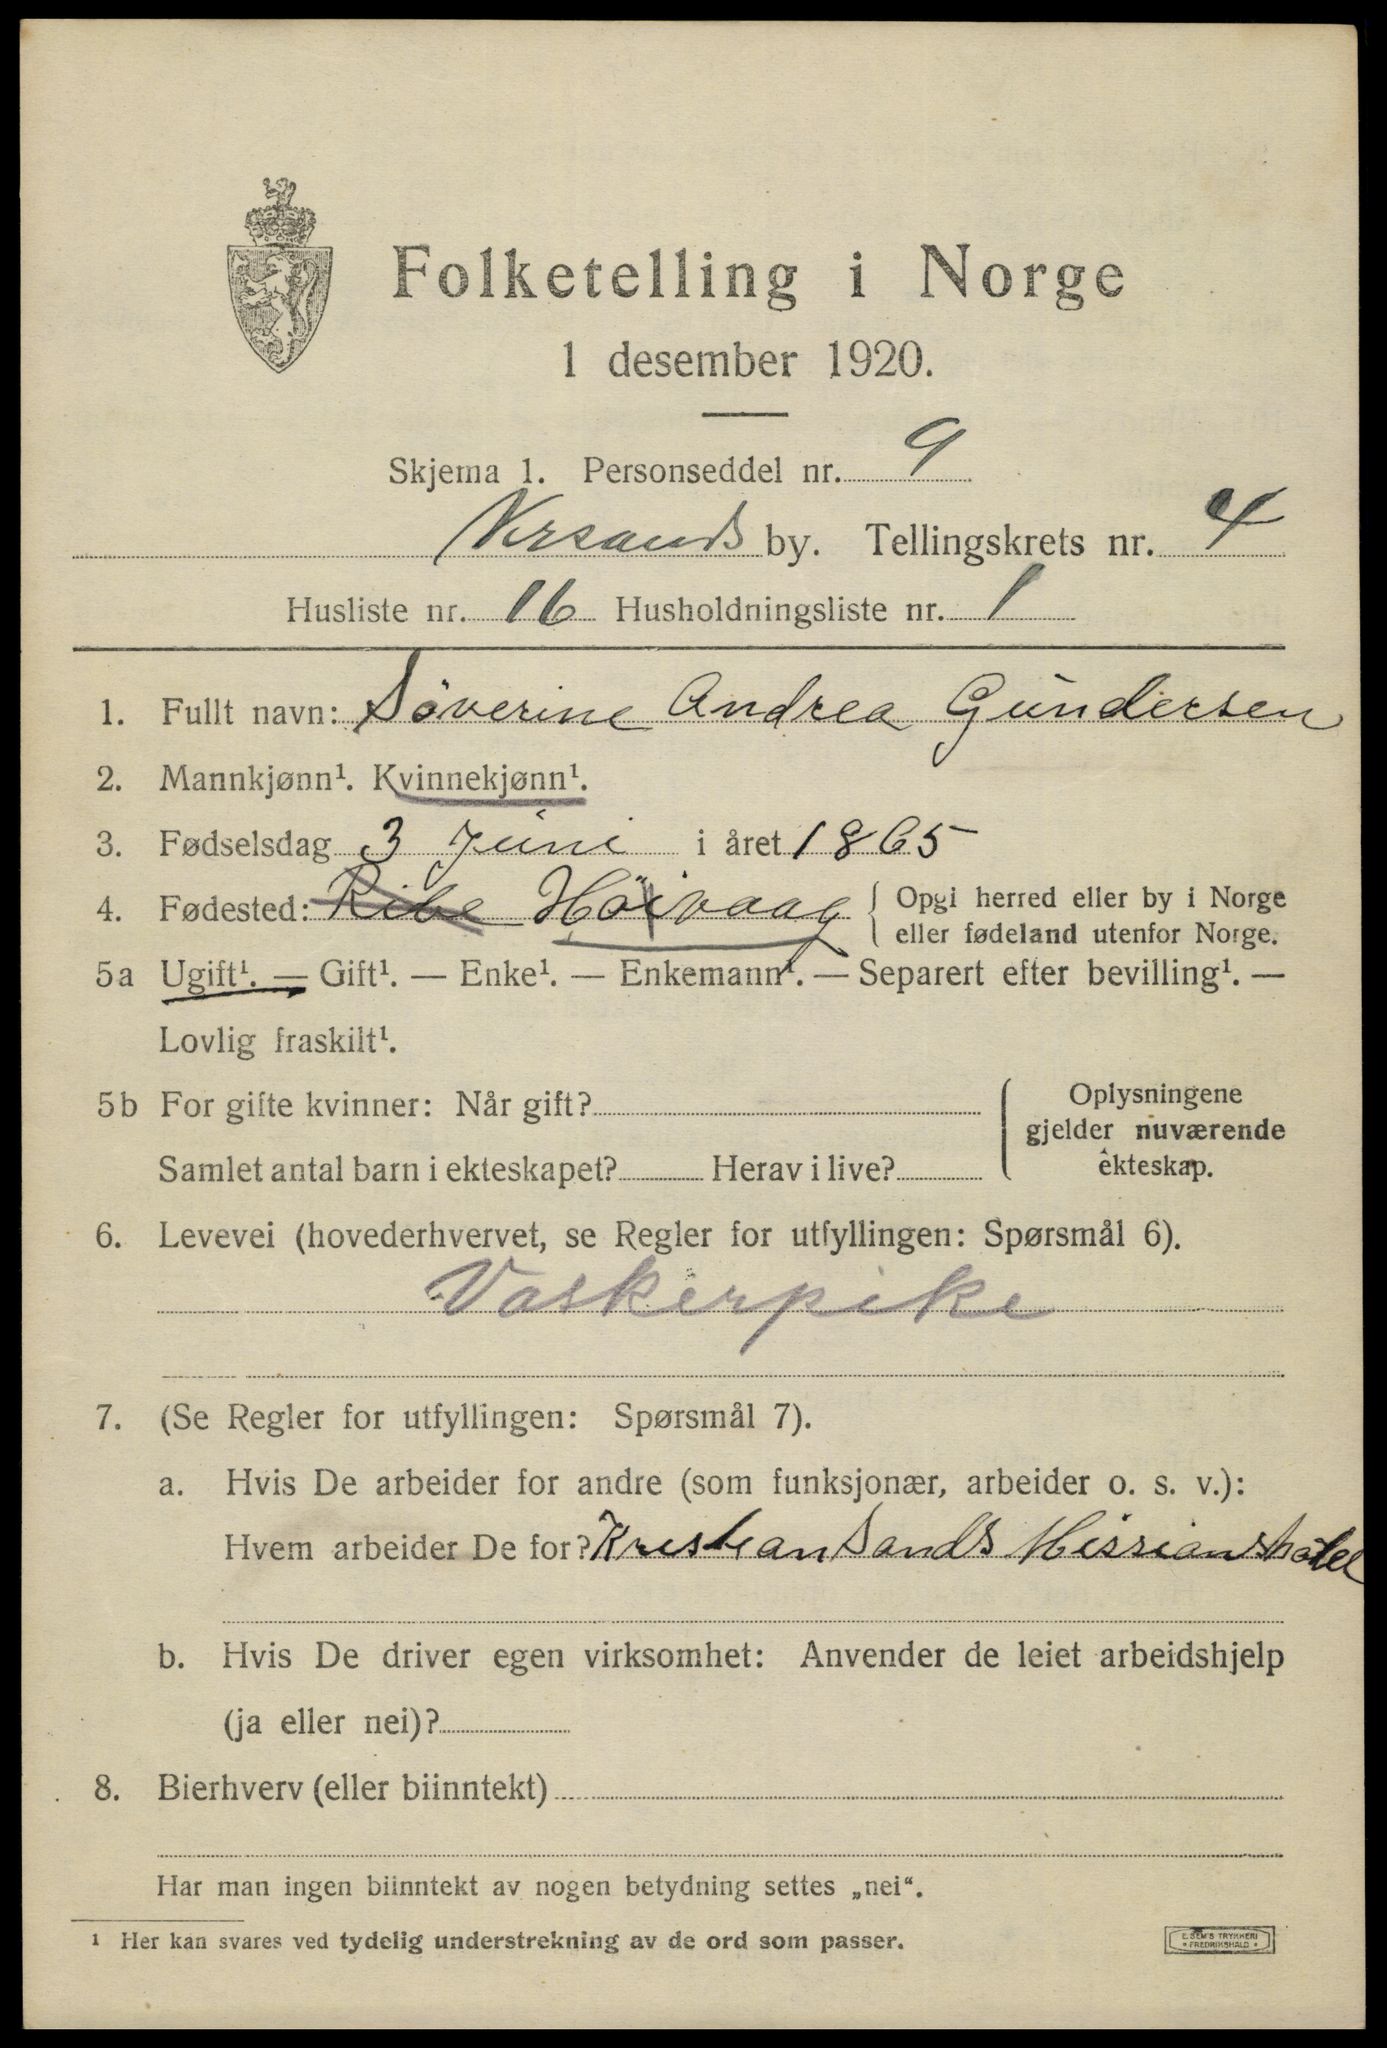 Folketelling i Norge
1 desember 1920.
Skjema 1. Personseddel nr. 9
Krsands by. Tellingskrets nr. 4
Husliste nr. 16 Husholdningsliste nr. 1
1. Fullt navn: Söverine Andrea Gundersen
2. Mannkjønn¹. Kvinnekjønn¹.
3. Fødselsdag 3 Juni i året 1865
4. Fødested: Ribe Höivaag { Opgi herred eller by i Norge
eller fødeland utenfor Norge.
5a Ugift¹. — Gift¹. — Enke¹. — Enkemann¹. — Separert efter bevilling¹. —
Lovlig fraskilt¹.
5b For gifte kvinner: Når gift? { Oplysningene
gjelder nuværende
Samlet antal barn i ekteskapet? Herav i live? ekteskap.
6. Levevei (hovederhvervet, se Regler for utfyllingen: Spørsmål 6).
Vaskerpike
7. (Se Regler for utfyllingen: Spørsmål 7).
a. Hvis De arbeider for andre (som funksjonær, arbeider o. s. v.):
Hvem arbeider De for? Kristiansands Missionshotel
b. Hvis De driver egen virksomhet: Anvender de leiet arbeidshjelp
(ja eller nei)?
8. Bierhverv (eller biinntekt)
Har man ingen biinntekt av nogen betydning settes „nei“.
¹ Her kan svares ved tydelig understrekning av de ord som passer.
E. SEM'S TRYKKERI
• FREDRIKSHALD •